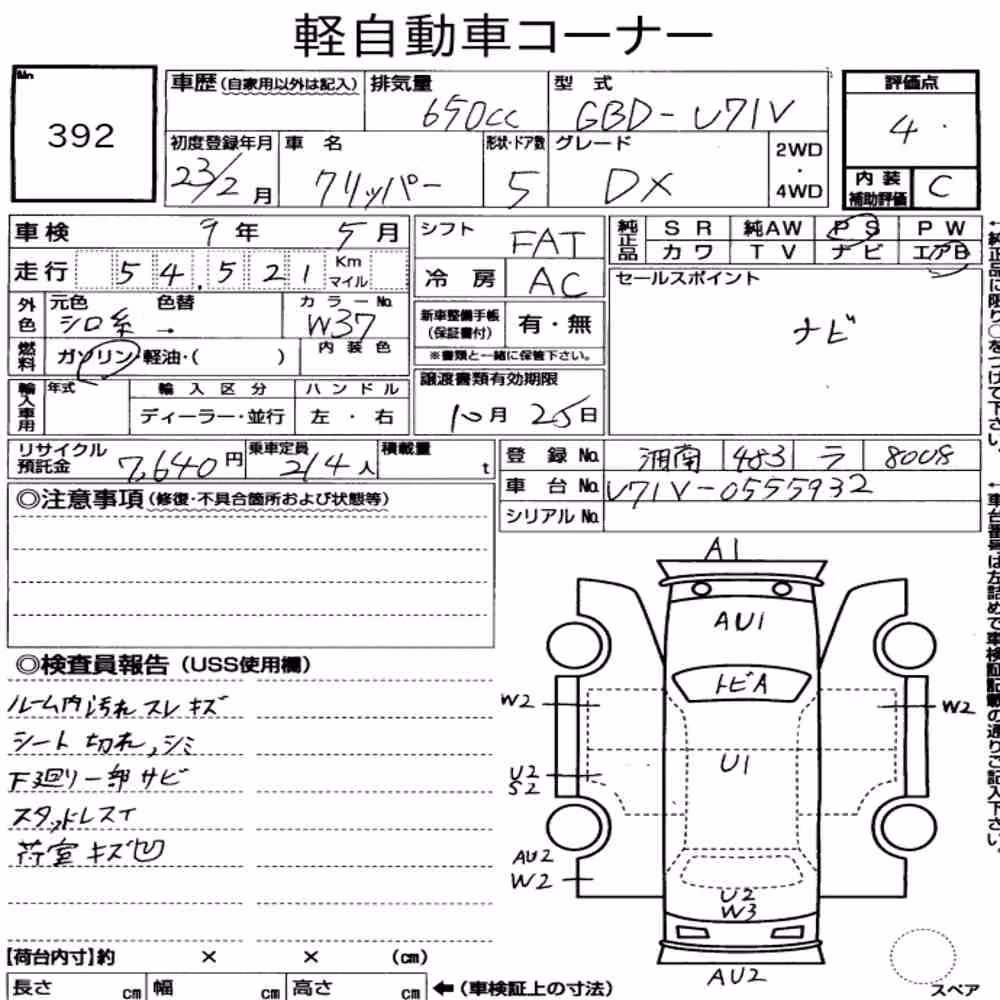 軽自動車コーナー
No.
392
車歴(自家用以外は記入)
排気量
650cc
型式
GBD-U71V
評価点
4
初度登録年月
23/2月
車名
クリッパー
形状・ドア数
5
グレード
DX
2WD
・
4WD
内装補助評価
C
車検 9年 5月
走行 54,521 Km マイル
外色
元色 シロ系
色替 →
カラーNo.
W37
燃料
ガソリン・軽油・( )
内装色
輸入車用
年式
輸入区分
ディーラー・並行
ハンドル
左・右
シフト
FAT
冷房
AC
新車整備手帳
(保証書付)
有・無
※書類と一緒に保管下さい。
譲渡書類有効期限
10月 25日
純正品
SR 純AW PS PW
カワ TV ナビ エアB
セールスポイント
ナビ
←純正品に限り○をつけて下さい。
リサイクル預託金
7,640円
乗車定員
2/4人
積載量
t
登録No.
湘南 483 ラ 8008
車台No.
U71V-0555932
シリアルNo.
←車台番号は左詰めで車検証記載の通りご記入下さい。
◎注意事項(修復・不具合箇所および状態等)
◎検査員報告(USS使用欄)
ルーム内汚れ スレ キズ
シート切れ,シミ
下廻り一部サビ
スタッドレスT
荷室キズ凹
A1
AU1
トビA
W2
W2
U1
U2
S2
AU2
W2
U2
W3
AU2
スペア
【荷台内寸】約 × × (cm)
長さ cm 幅 cm 高さ cm
←(車検証上の寸法)